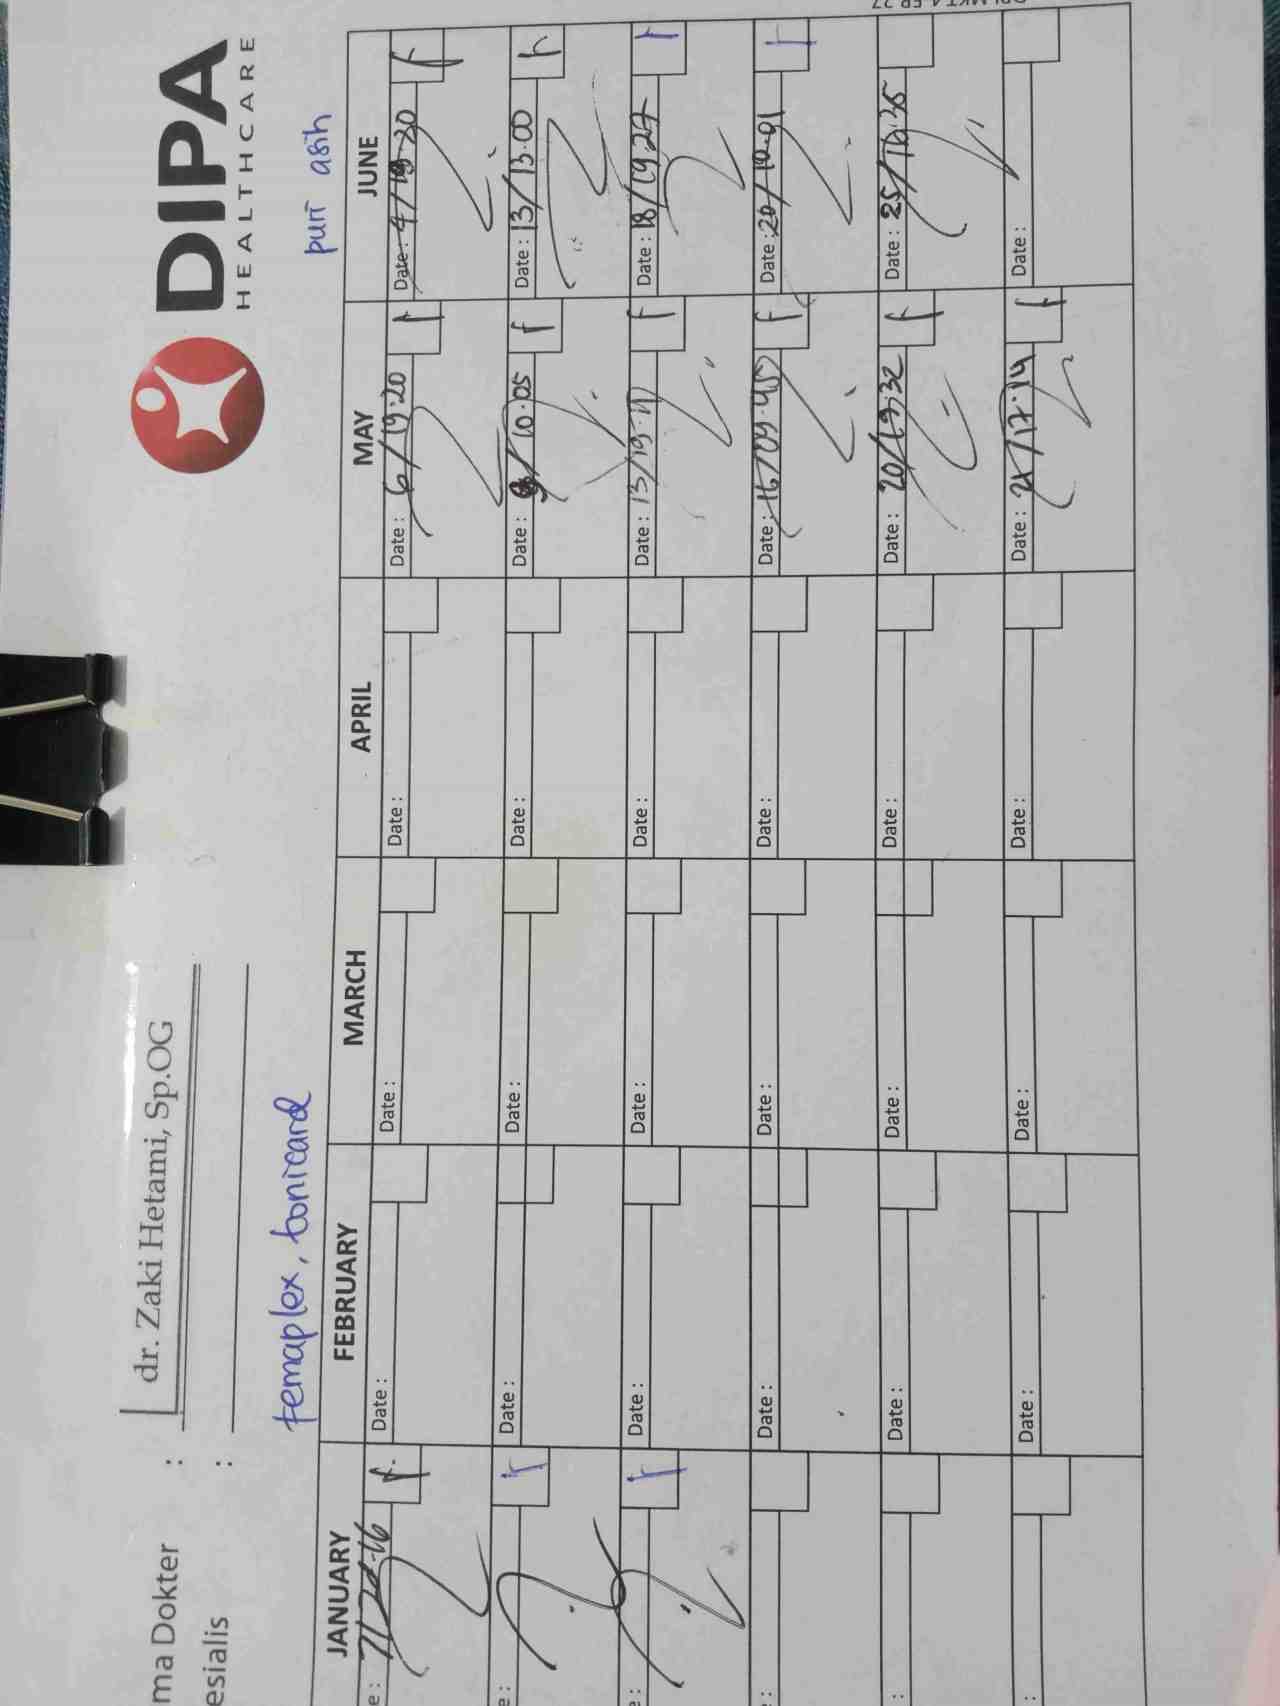 DIPA
HEALTHCARE
ma Dokter : dr. Zaki Hetami, Sp.OG
esialis :
femaplex, bonicard
puri asih
JANUARY FEBRUARY MARCH APRIL MAY JUNE
e : 7/20.16 f Date : Date : Date : Date : 6/19.20 f Date : 4/19.20 f
e : f Date : Date : Date : Date : 9/10.05 f Date : 13/13.00 h
e : f Date : Date : Date : Date : 13/19.11 f Date : 18/09.27 f
: Date : Date : Date : Date : 16/09.45 f Date : 20/10.01 f
: Date : Date : Date : Date : 20/19.32 f Date : 25/16.35
: Date : Date : Date : Date : 21/17.14 f Date :